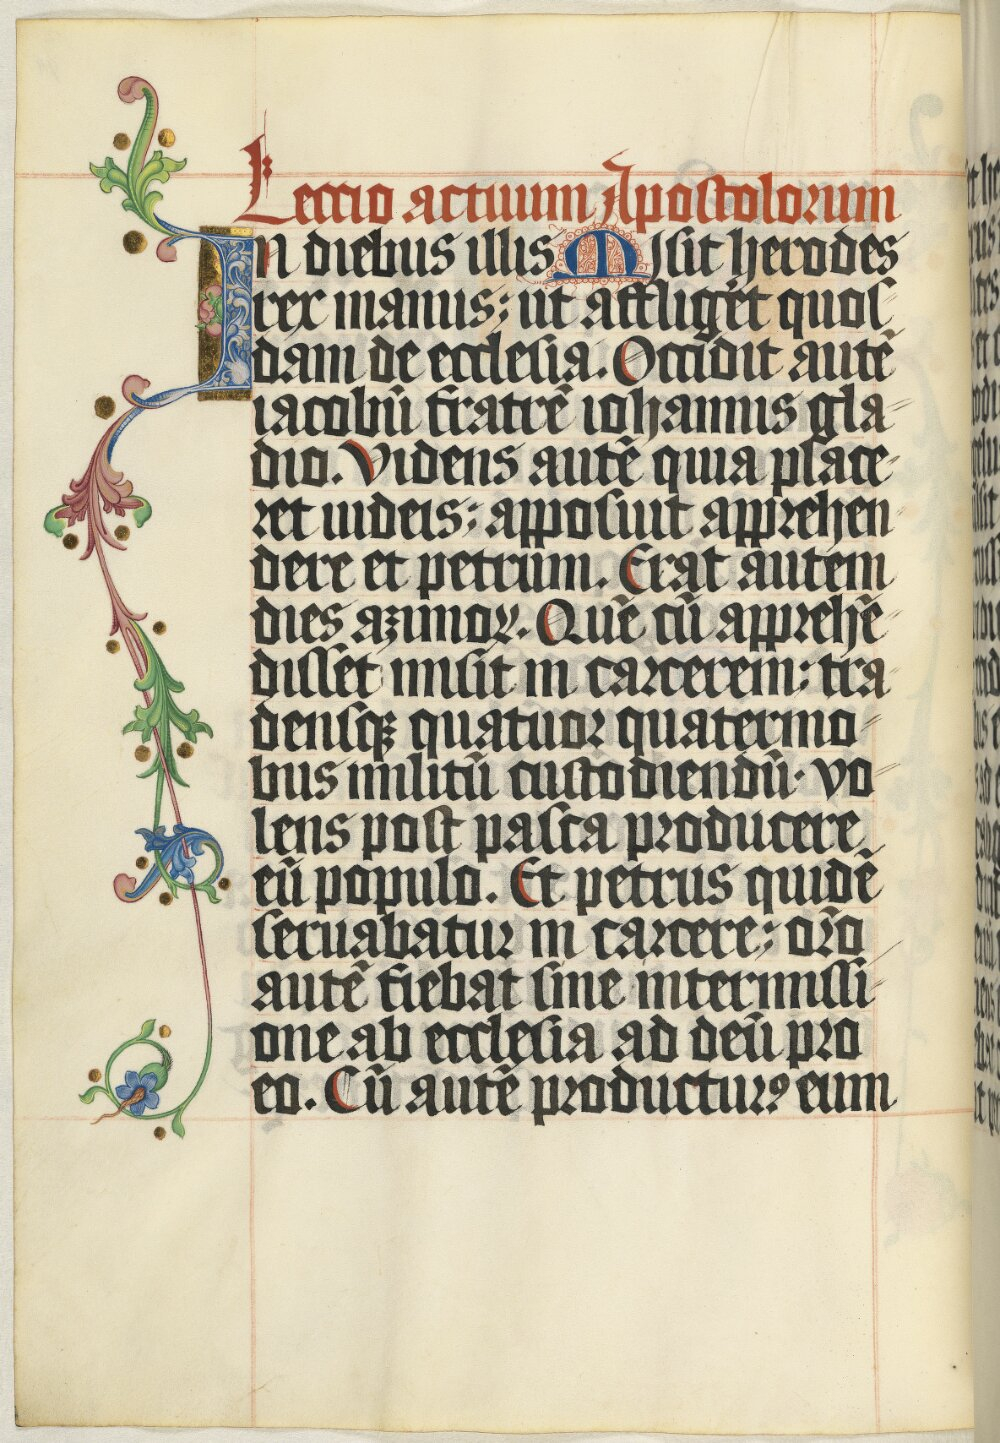 Leccio actuum Apostolorum
In diebus illis Misit herodes
rex manus; ut affligēt quos
dam de ecclesia. Occidit autē
iacobū fratrē iohannis gla
dio. Videns autē quia place
ret iudeis; apposuit apprehen
dere et petrum. Erat autem
dies azimoꝝ. Quē cū apprehē
disset misit in carcerem; tra
densqꝫ quatuor quaternio
bus militū custodiendū. vo
lens post pasca producere
eū populo. Et petrus quidē
seruabatur in carcere; or̄o
autē fiebat sine intermissi
one ab ecclesia ad deū pro
eo. Cū autē producturꝯ eum